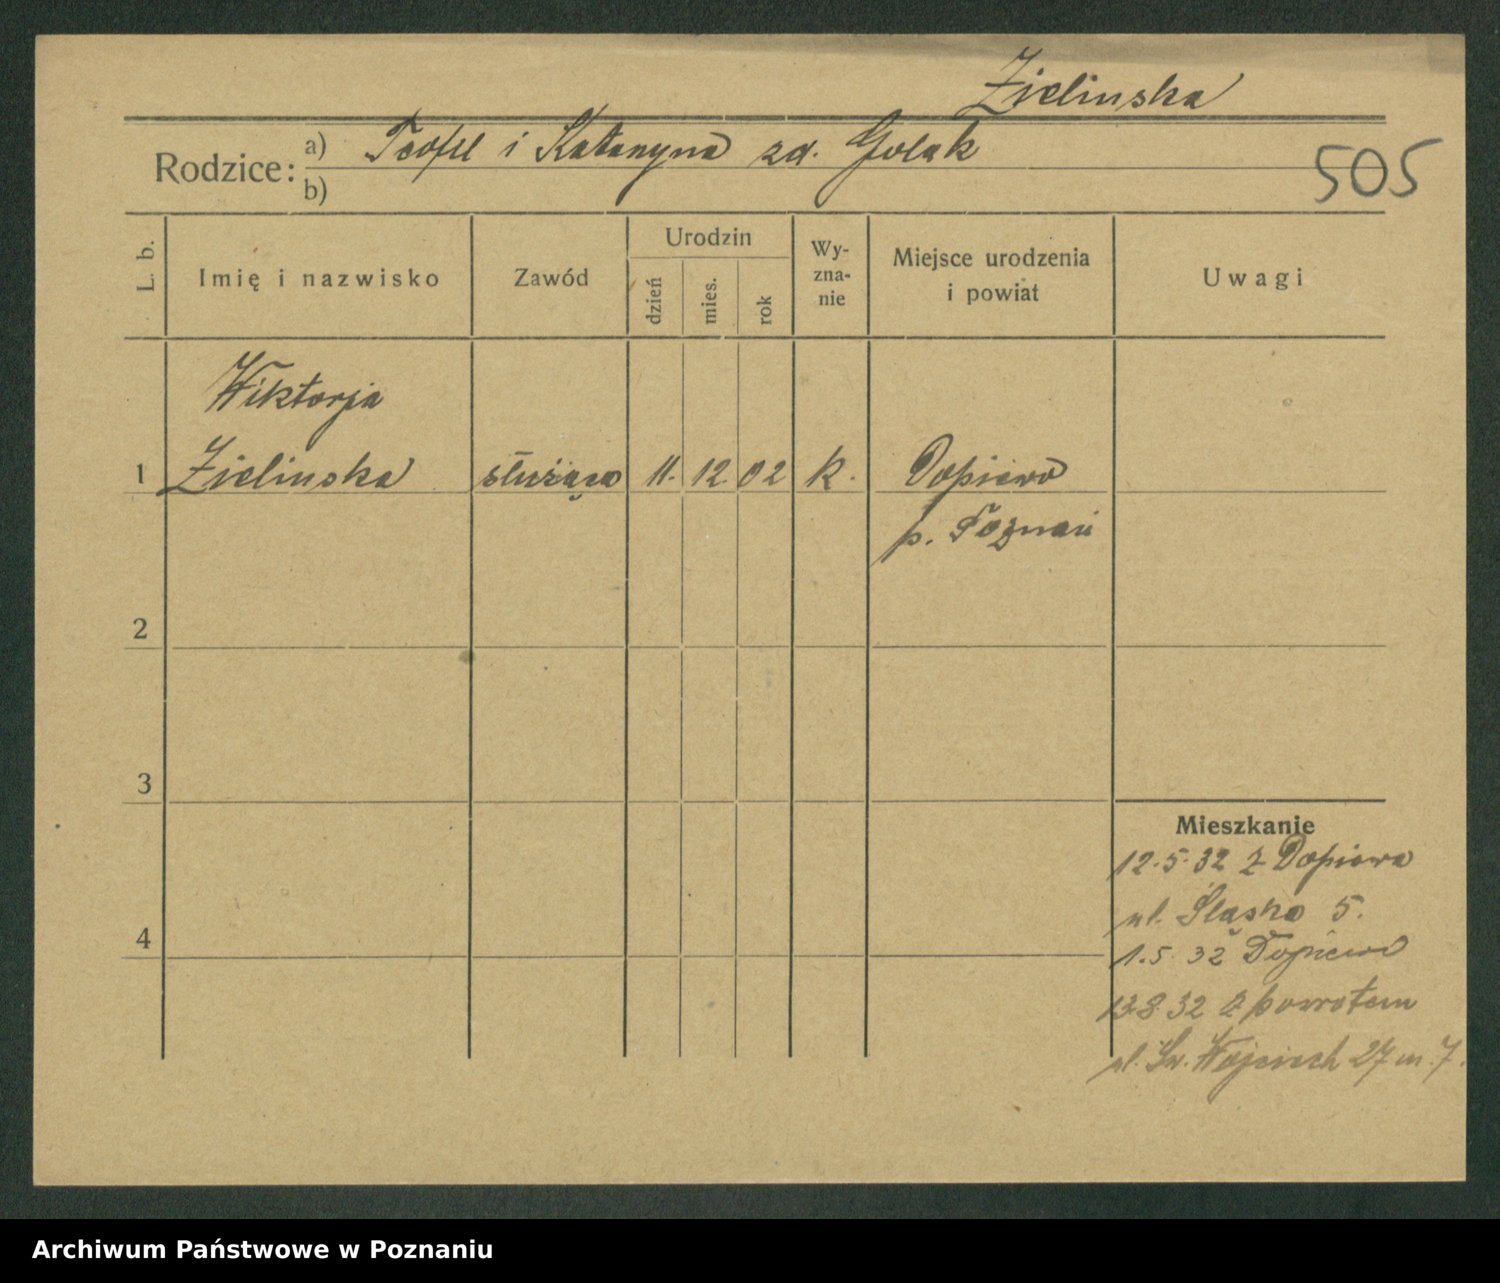 Zielinska
Rodzice: a) Teofil i Katarzyna zd. Golak
b)
505
L. b.
Imię i nazwisko
Zawód
Urodzin
dzień
mies.
rok
Wy-
zna-
nie
Miejsce urodzenia
i powiat
Uwagi
Wiktorja
1 Zielinska służąca 11. 12. 02 k. Dopiewo
p. Poznań
2
3
4
Mieszkanie
12.5.32 z Dopiewa
ul. Śląska 5.
1.5.32 Dopiewo
13.8.32 z powrotem
ul. Św. Wojciech 27 m. 7.
Archiwum Państwowe w Poznaniu